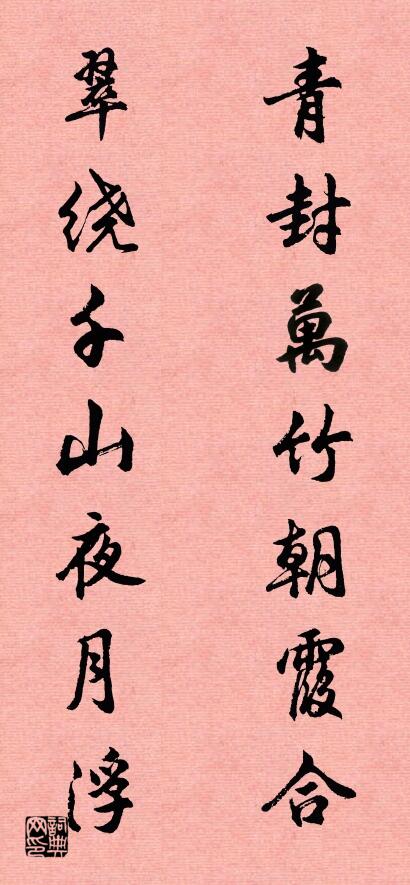 青封萬竹朝霞合
翠绕千山夜月浮
詞典
网印